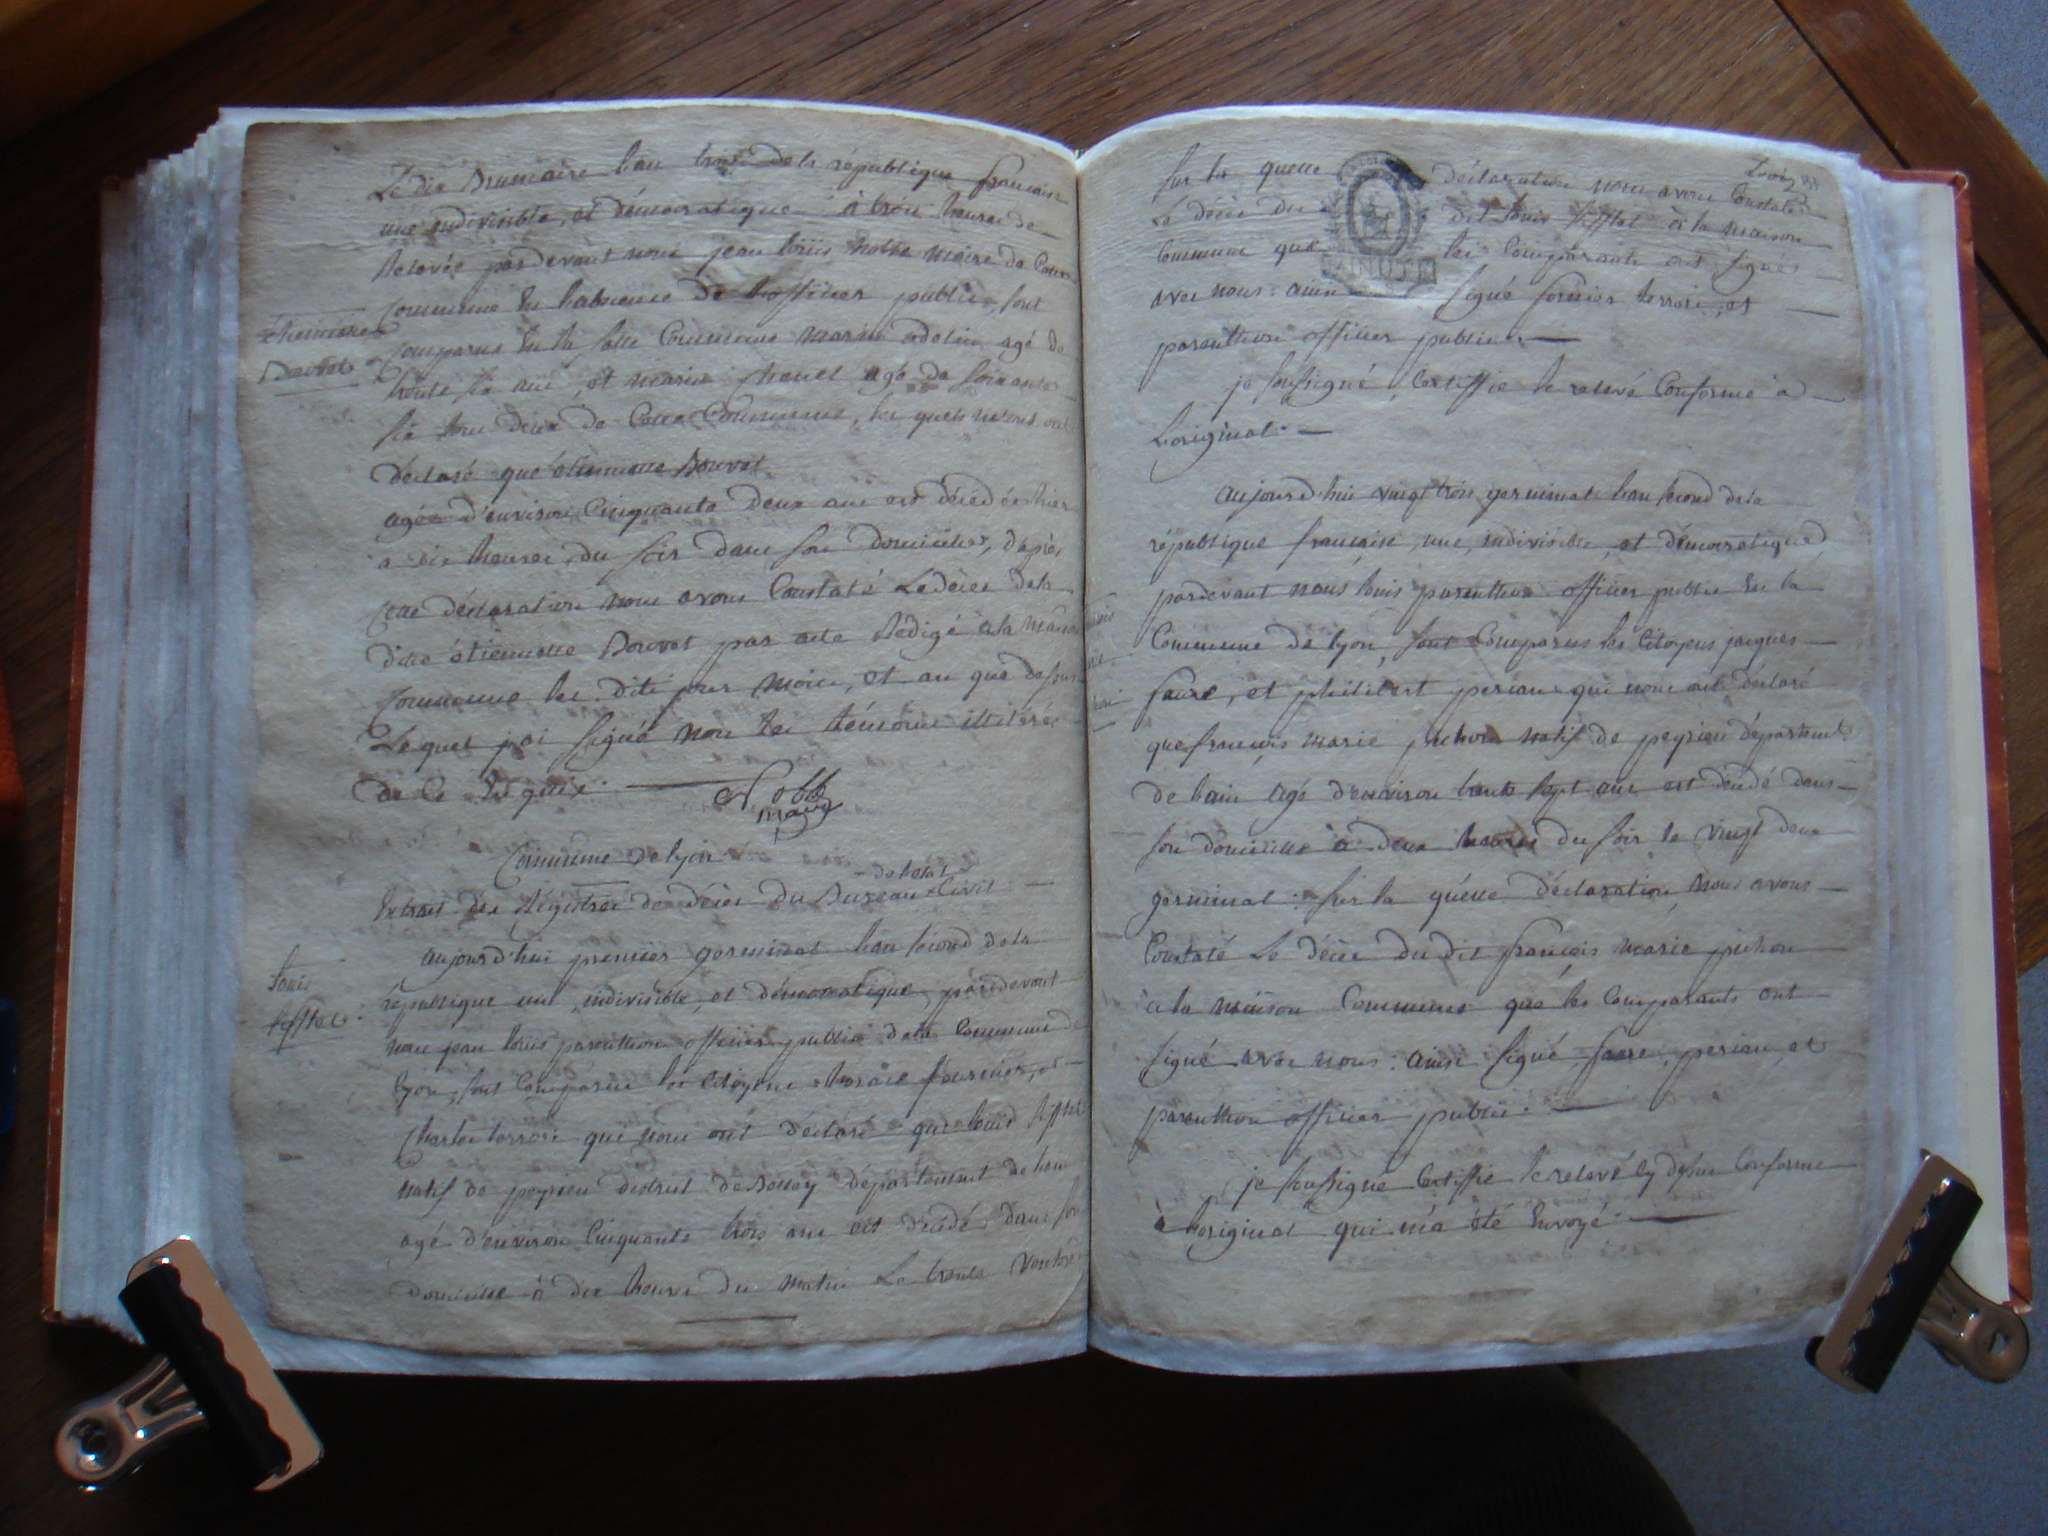 Le dix Brumaire l'an trois de la république française
une indivisible, et démocratique à trois heures de
Relevée pardevant nous jean louis Nobbe maire de Cette
Commune En l'absence de L'officier public, sont
étiennette
Bouvet
Comparus En la salle Commune marin adelin agé de
trente six ans, et marin agé de soixante
six tous deux de Cette Commune, les quels m'ont
déclaré que étiennette Bouvet
agée d'environ Cinquante Deux ans est décédée hier
a six heures du soir dans son Domicile, d'après
Cette déclaration nous avons Constaté Le décès dela
dite étiennette Bouvet par acte Rédigé à la maison
Commune les dits jour mois, et an que dessus
Lequel j'ai signé non les témoins illitérés
de Ce Enquis. Nobbe
maire
Commune de lyon
Extrait des Régistres de décès du Bureau de l'état Civil
Louis
aujourd'hui premier germinal l'an sécond dela
république une, indivisible, et démocratique, pardevant
nous jean louis parenthon officier public dela Commune de
lyon, sont Comparus les Citoyens fournier, et
Charles terrori qui nous ont déclaré que louis
natif de peyrieu district de Belley département de l'ain
agé d'environ Cinquante trois ans est décédé dans son
domicile à dix heures du matin Le trente Ventose
sur la quelle déclaration nous avons Constaté
Le décès du dit louis à la maison
Commune que les Comparants ont signés
avec nous: ainsi signé fournier terrori, et
parenthon officier public.
je soussigné, Certiffie le relevé Conforme à
L'original.
aujourd'hui vingt trois germinal l'an second dela
république française, une, indivisible, et démocratique,
pardevant nous louis parenthon officier public En la
Commune de lyon, sont Comparus les Citoyens jacques
faure, et philibert perian qui nous ont déclaré
que françois marie pichon natif de peyrieu départemt
de l'ain agé d'environ trente sept ans est décédé dans
son domicile à deux heures du soir le vingt deux
germinal: sur la quelle déclaration, nous avons
Constaté Le décès du dit françois marie pichon
à la maison Commune que les Comparants ont
signé avec nous: ainsi signé, faure, perian, et
parenthon officier public.
je soussigné Certiffie le relevé Cy dessus Conforme
à L'original qui m'a été Envoyé.